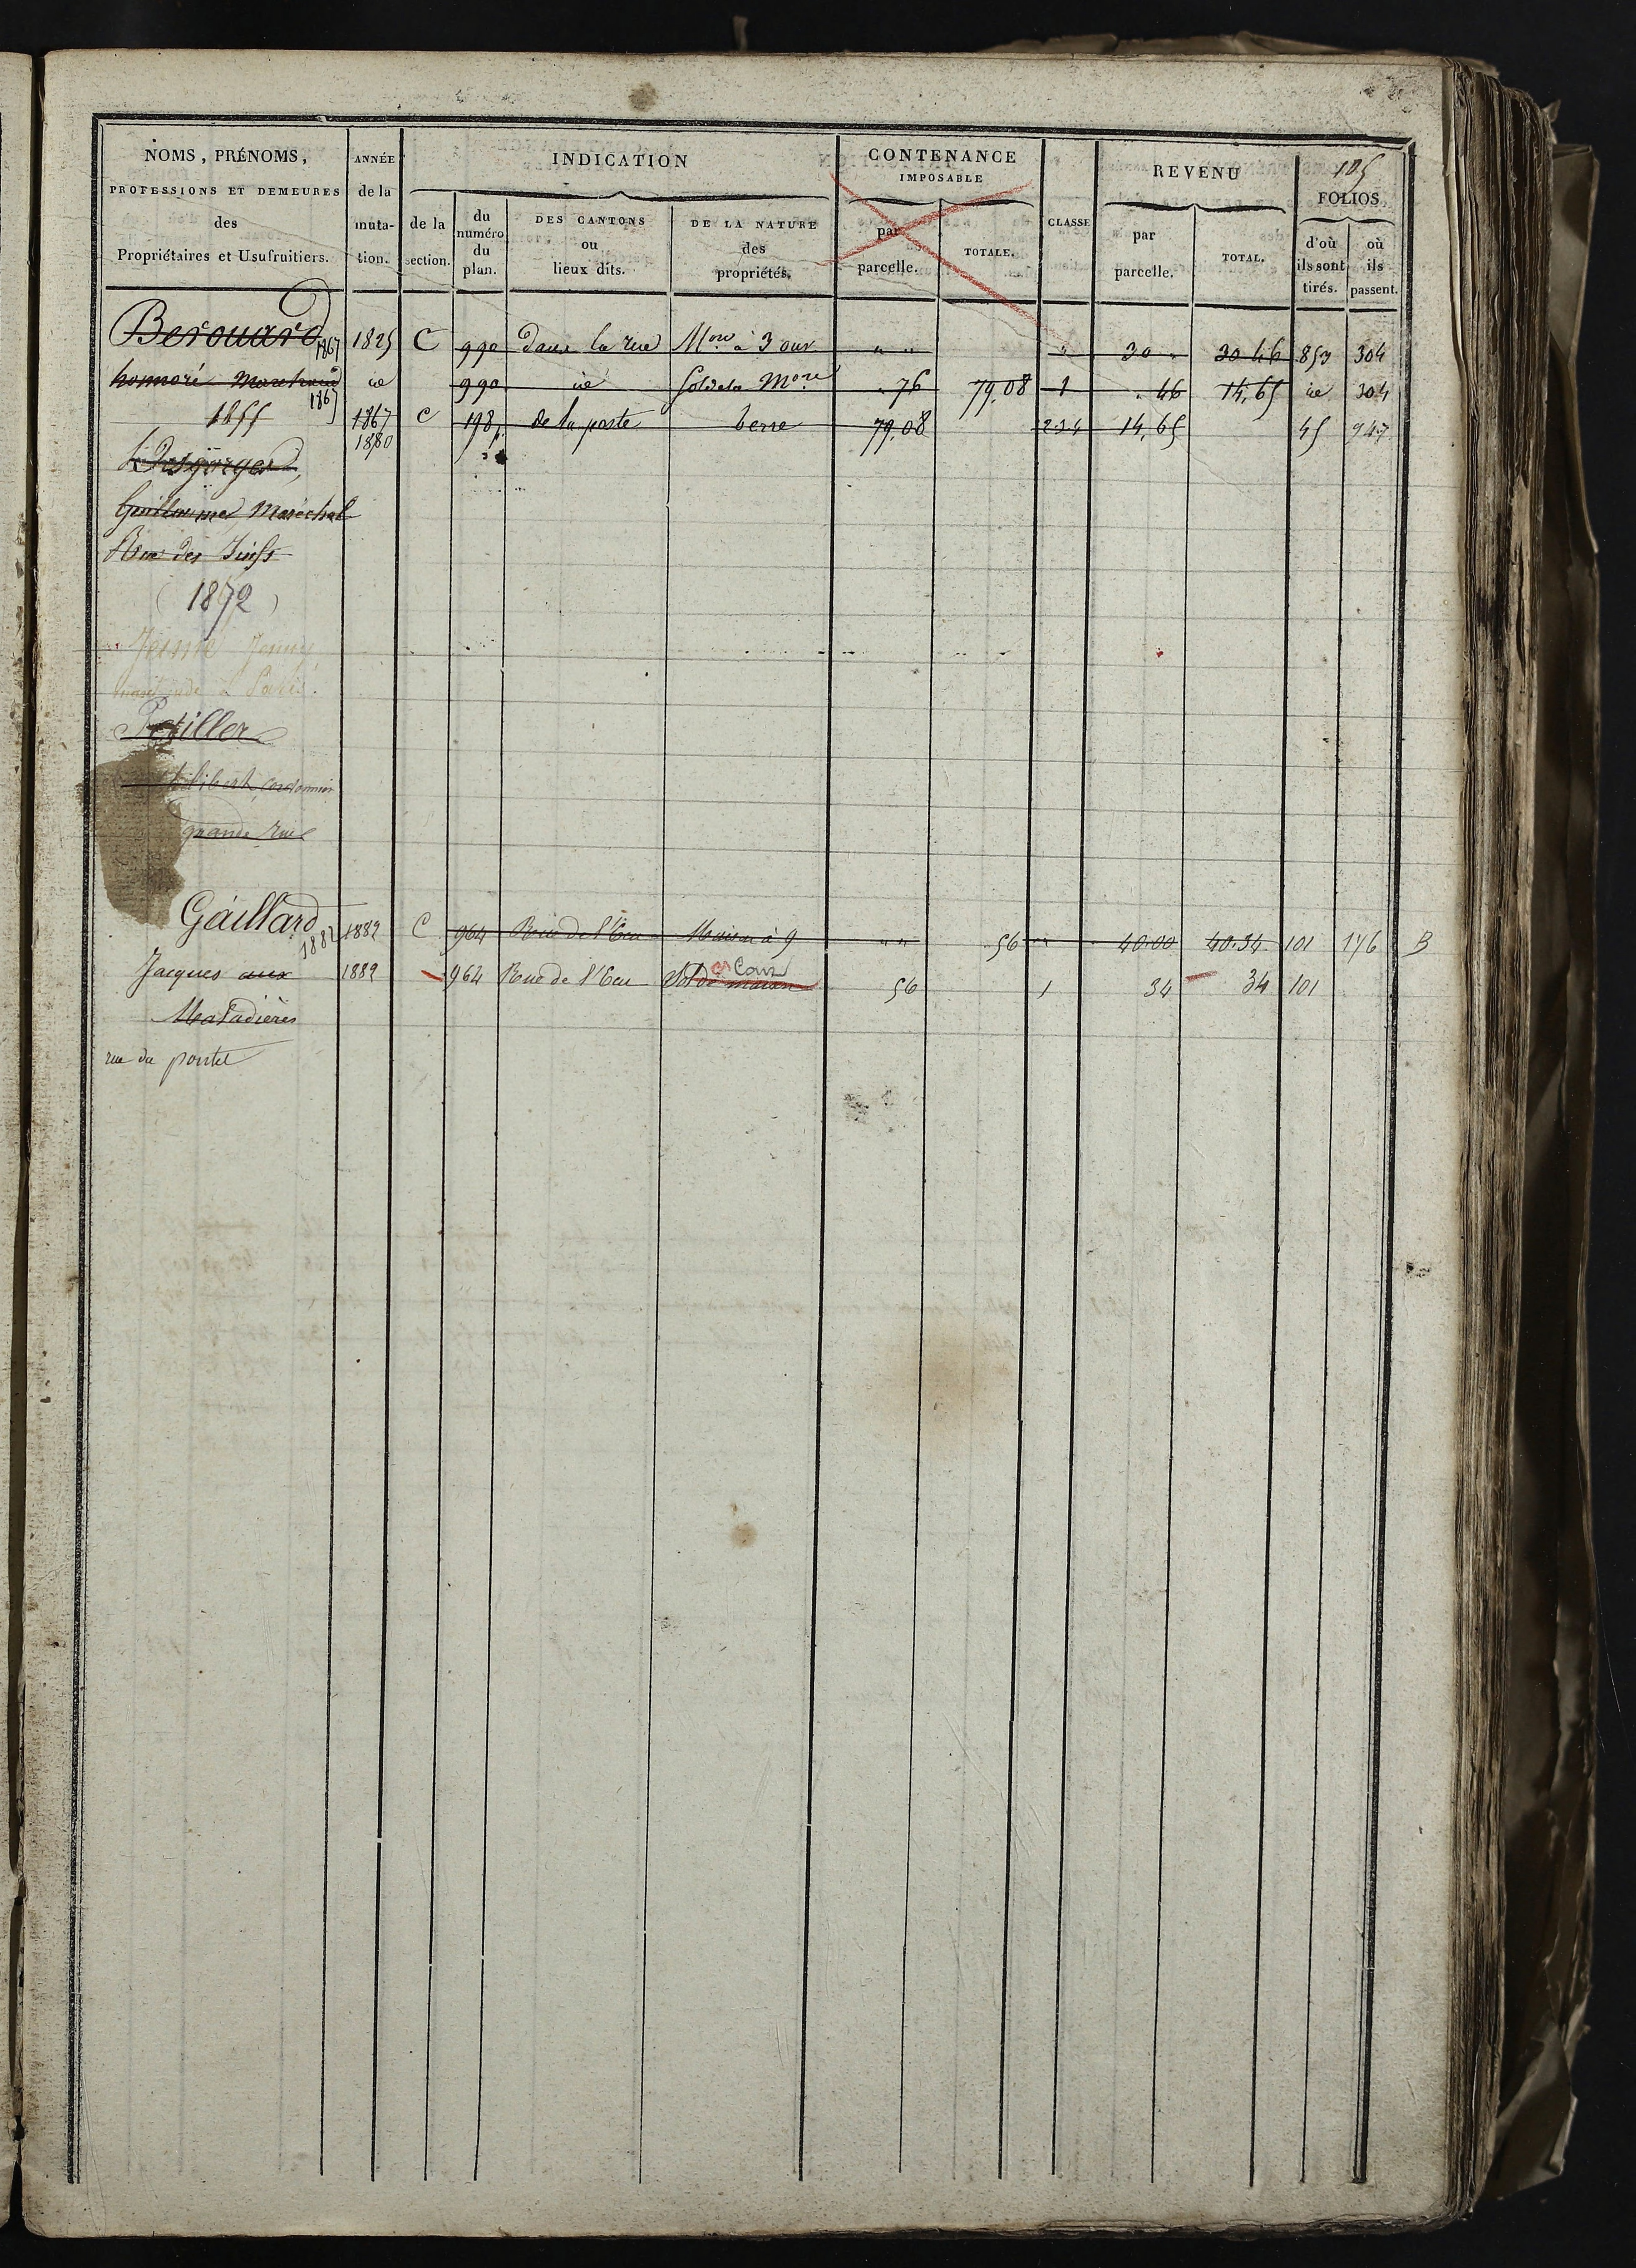 105
NOMS, PRÉNOMS, PROFESSIONS ET DEMEURES des Propriétaires et Usufruitiers.
ANNÉE de la muta-tion.
INDICATION
de la section.
du numéro du plan.
DES CANTONS ou lieux dits.
DE LA NATURE des propriétés.
CONTENANCE IMPOSABLE
par parcelle.
TOTALE.
CLASSE
REVENU
par parcelle.
TOTAL.
FOLIOS
d'où ils sont tirés.
où ils passent.
Berouard 1867 1825 C 990 dans la rue Mon à 3 ouv " " " 30 " 30 46 853 304
honnoré Marchand 1867 id 990 id Sol de la Mon 76 79.08 1 . 46 14,65 id 304
1855 1867 C 198 p de la poste terre 79.08 2 3 4 14,65 45 947
1880
Desgorges,
Guillaume Maréchal
Rue des Juifs
(1872)
Jenny
Petiller
Philibert cordonnier
grande rue
Gaillard 1882 1882 C 964 Rue de l'Ecu Maison à 9 " " 56 " 40.00 40.34 101 176 B
Jacques aux 1882 964 Rue de l'Ecu Sol de maison Cour 56 1 34 34 101
Maladières
rue du pontel